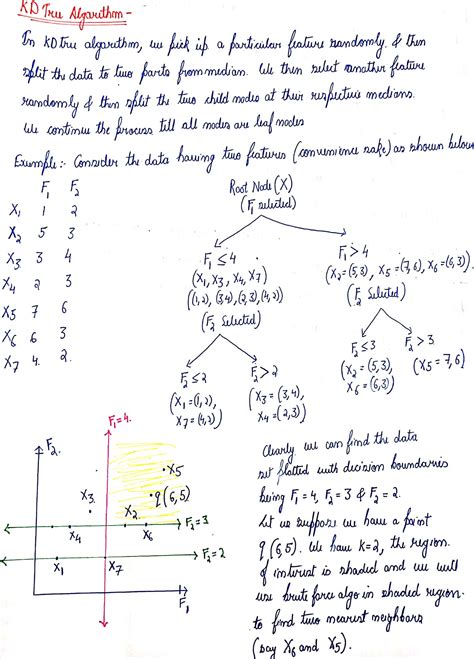 KD Tree Algorithm -
In KD Tree algorithm, we pick up a particular feature randomly & then
split the data to two parts from median. We then select another feature
randomly & then split the two child nodes at their respective medians.
We continue the process till all nodes are leaf nodes
Example:- Consider the data having two features (convenience sake) as shown below
F₁ F₂
X₁ 1 2
X₂ 5 3
X₃ 3 4
X₄ 2 3
X₅ 7 6
X₆ 6 3
X₇ 4 2
Root Node (X)
(F₁ selected)
F₁ ≤ 4
(X₁, X₃, X₄, X₇)
((1,2), (3,4), (2,3), (4,2))
(F₂ Selected)
F₁ > 4
(X₂=(5,3), X₅=(7,6), X₆=(6,3))
(F₂ Selected)
F₂ ≤ 2
(X₁=(1,2),
X₇=(4,2))
F₂ > 2
(X₃=(3,4),
X₄=(2,3))
F₂ ≤ 3
(X₂=(5,3),
X₆=(6,3))
F₂ > 3
(X₅=7,6)
F₁=4.
F₂
X₅
q(6,5)
X₃
X₂
F₂=3
X₄
X₆
F₂=2
X₁
X₇
F₁
Clearly, we can find the data
set plotted with decision boundaries
being F₁=4, F₂=3 & F₂=2.
Let us suppose we have a point
q(6,5). We have k=2, the region
of interest is shaded and we will
use brute force algo in shaded region
to find two nearest neighbors
(say X₆ and X₅).